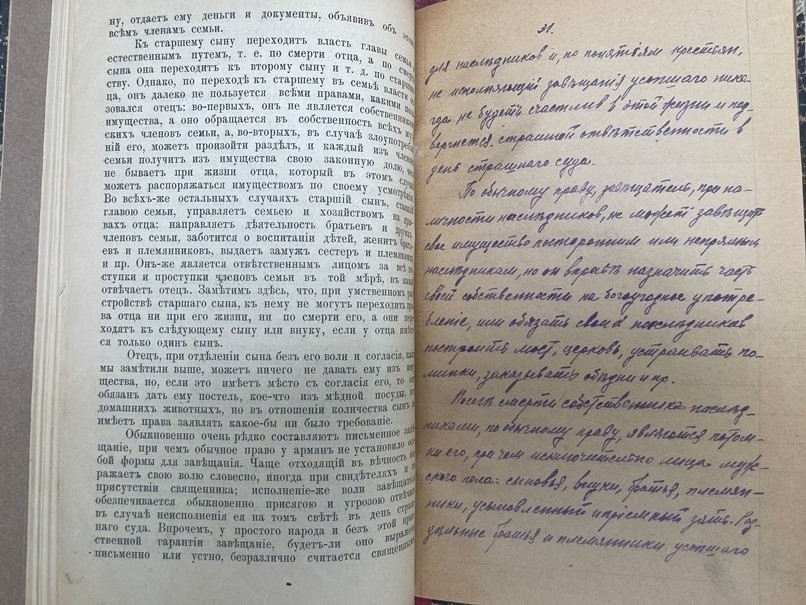 ну, отдаетъ ему деньги и документы, объявивъ объ этомъ
всѣмъ членамъ семьи.
Къ старшему сыну переходитъ власть главы семьи
естественнымъ путемъ, т. е. по смерти отца, а по смерти
сына она переходитъ къ второму сыну и т. д. по старшин-
ству. Однако, по переходѣ къ старшему въ семьѣ власти от-
ца, онъ далеко не пользуется всѣми правами, какими поль-
зовался отецъ: во-первыхъ, онъ не является собственникомъ
имущества, а оно обращается въ собственность всѣхъ муж-
скихъ членовъ семьи, а, во-вторыхъ, въ случаѣ злоупотребле-
ній его, можетъ произойти раздѣлъ, и каждый изъ членовъ
семьи получитъ изъ имущества свою законную долю,
не бываетъ при жизни отца, который въ этомъ случаѣ
можетъ распоряжаться имуществомъ по своему усмотрѣнію.
Во всѣхъ-же остальныхъ случаяхъ старшій сынъ, ставшій
главою семьи, управляетъ семьею и хозяйствомъ на пра-
вахъ отца: направляетъ дѣятельность братьевъ и другихъ
членовъ семьи, заботится о воспитаніи дѣтей, женитъ брать-
евъ и племянниковъ, выдаетъ замужъ сестеръ и племянницъ
и пр. Онъ-же является отвѣтственнымъ лицомъ за всѣ по-
ступки и проступки членовъ семьи въ той мѣрѣ, въ какой
отвѣчаетъ отецъ. Замѣтимъ здѣсь, что, при умственномъ раз-
стройствѣ старшаго сына, къ нему не могутъ переходить права
отца ни при его жизни, ни по смерти его, а они пере-
ходятъ къ слѣдующему сыну или внуку, если у отца имѣет-
ся только одинъ сынъ.
Отецъ, при отдѣленіи сына безъ его воли и согласія, какъ
мы замѣтили выше, можетъ ничего не давать ему изъ иму-
щества, но, если это имѣетъ мѣсто съ согласія его, то онъ
обязанъ дать ему постель, кое-что изъ мѣдной посуды,
домашнихъ животныхъ, но въ отношеніи количества сынъ не
имѣетъ права заявлять какое-бы ни было требованіе.
Обыкновенно очень рѣдко составляютъ письменное завѣ-
щаніе, при чемъ обычное право у армянъ не установило осо-
бой формы для завѣщанія. Чаще отходящій въ вѣчность вы-
ражаетъ свою волю словесно, иногда при свидѣтеляхъ и въ
присутствіи священника; исполненіе-же воли завѣщателя
обезпечивается обыкновенно присягою и угрозою отвѣчать
въ случаѣ неисполненія ея на томъ свѣтѣ въ день страш-
наго суда. Впрочемъ, у простого народа и безъ этой нрав-
ственной гарантіи завѣщаніе, будетъ-ли оно выражено
письменно или устно, безразлично считается священнымъ
31.
для наслѣдниковъ и, по понятіямъ крестьян,
не исполняющій завѣщанія усопшаго нико-
гда не будетъ счастливъ в этой жизни и под-
вергнется страшной отвѣтственности в
день страшнаго суда.
По обычному праву, завѣщатель, при на-
личности наслѣдниковъ, не можетъ завѣщать
свое имущество постороннимъ или непрямымъ
наслѣдникам, но он вправѣ назначить часть
своей собственности на богоугодное употре-
бленіе, или обязать своихъ наслѣдников
построить мостъ, церковь, устраивать по-
минки, заказывать обѣдни и пр.
Послѣ смерти собственника наслѣд-
никами, по обычному праву, являются потом-
ки его, при чем исключительно лица муж-
ского пола: сыновья, внуки, братья, племян-
ники, усыновленный и пріемный зять. Раз-
дѣльные братья и племянники усопшаго